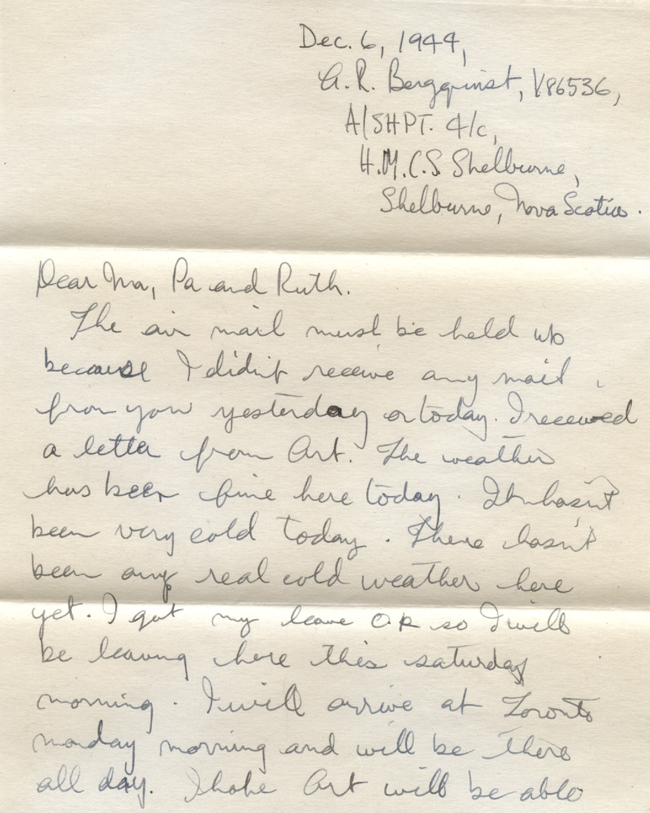 Dec. 6, 1944,
A. R. Bergquist, V86536,
A/SHPT. 4/c,
H.M.C.S Shelburne,
Shelburne, Nova Scotia.
Dear Ma, Pa and Ruth.
The air mail must be held up
because I didn't receive any mail
from you yesterday or today. I received
a letter from Art. The weather
has been fine here today. It hasn't
been very cold today. There hasn't
been any real cold weather here
yet. I got my leave OK so I will
be leaving here this saturday
morning. I will arrive at Toronto
monday morning and will be there
all day. I hope Art will be able